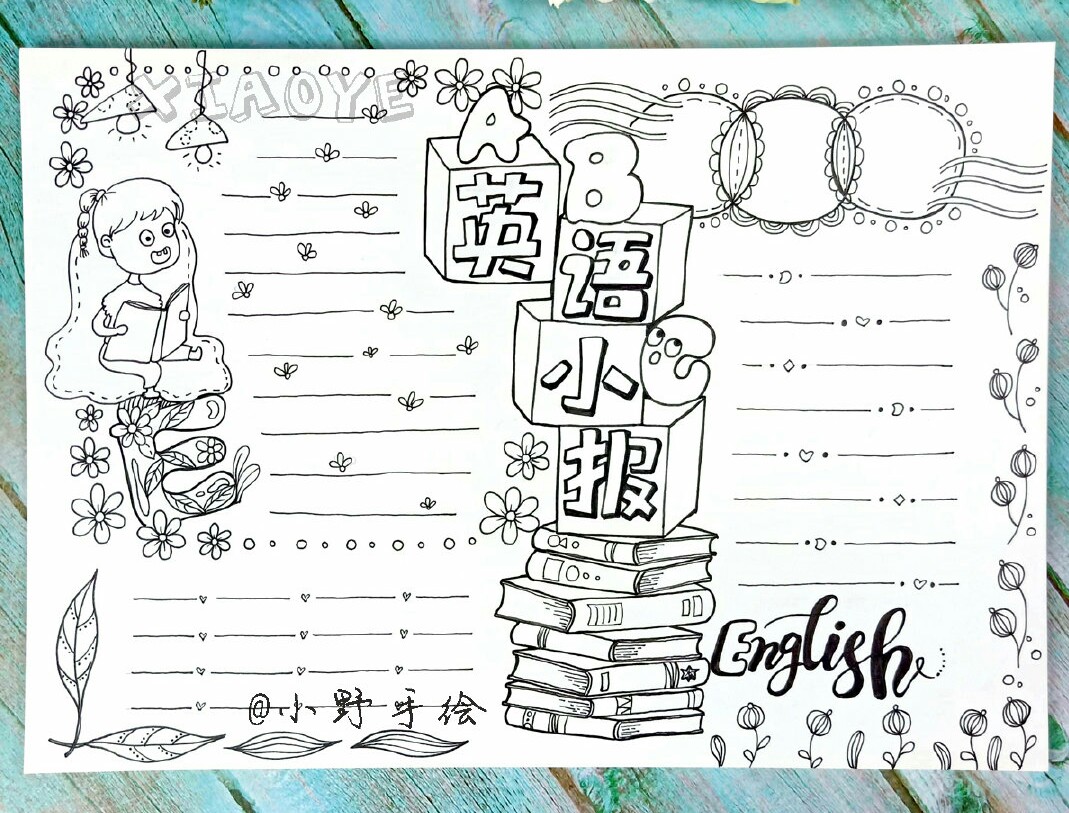 XIAOYE
A
B
C
英
语
小
报
E
English
@小野手绘